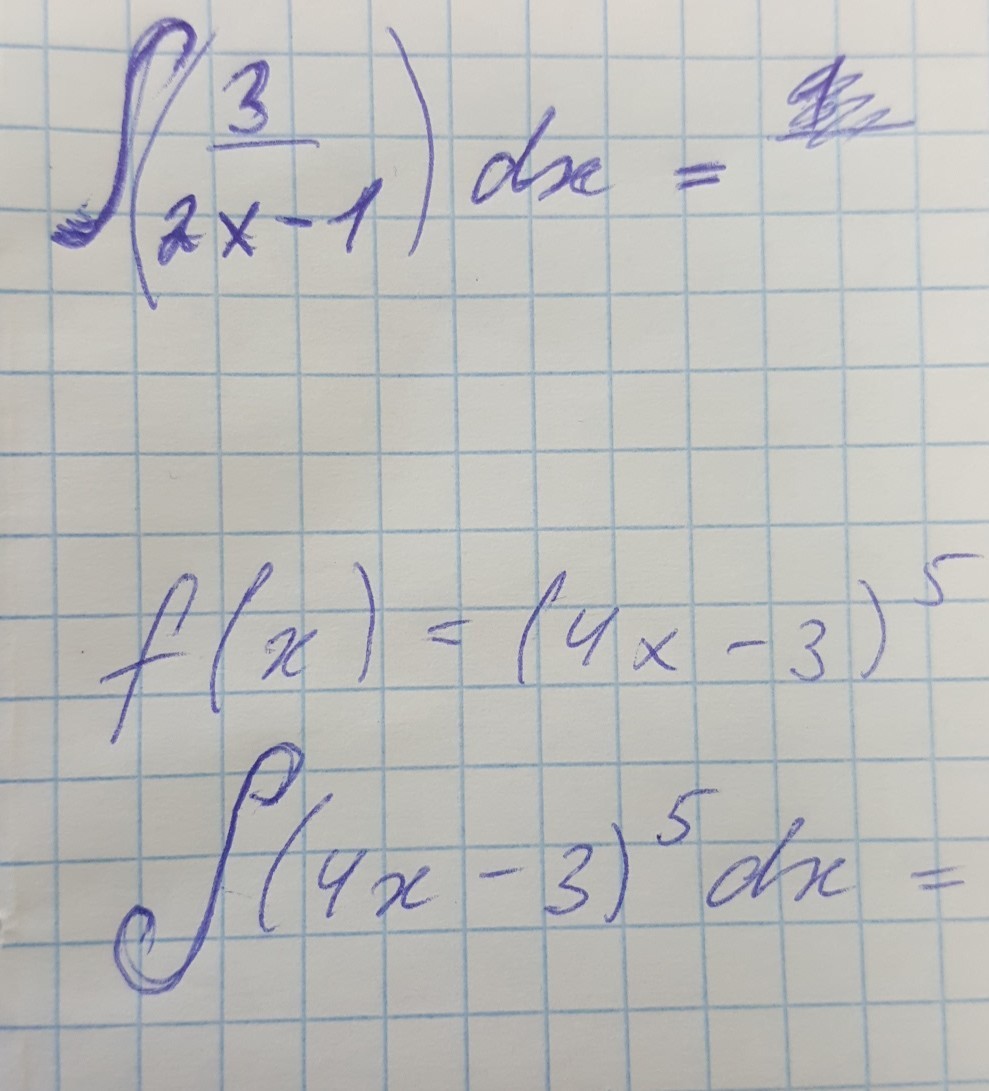 ∫(3/(2x-1)) dx =
f(x) = (4x-3)^5
∫(4x-3)^5 dx =